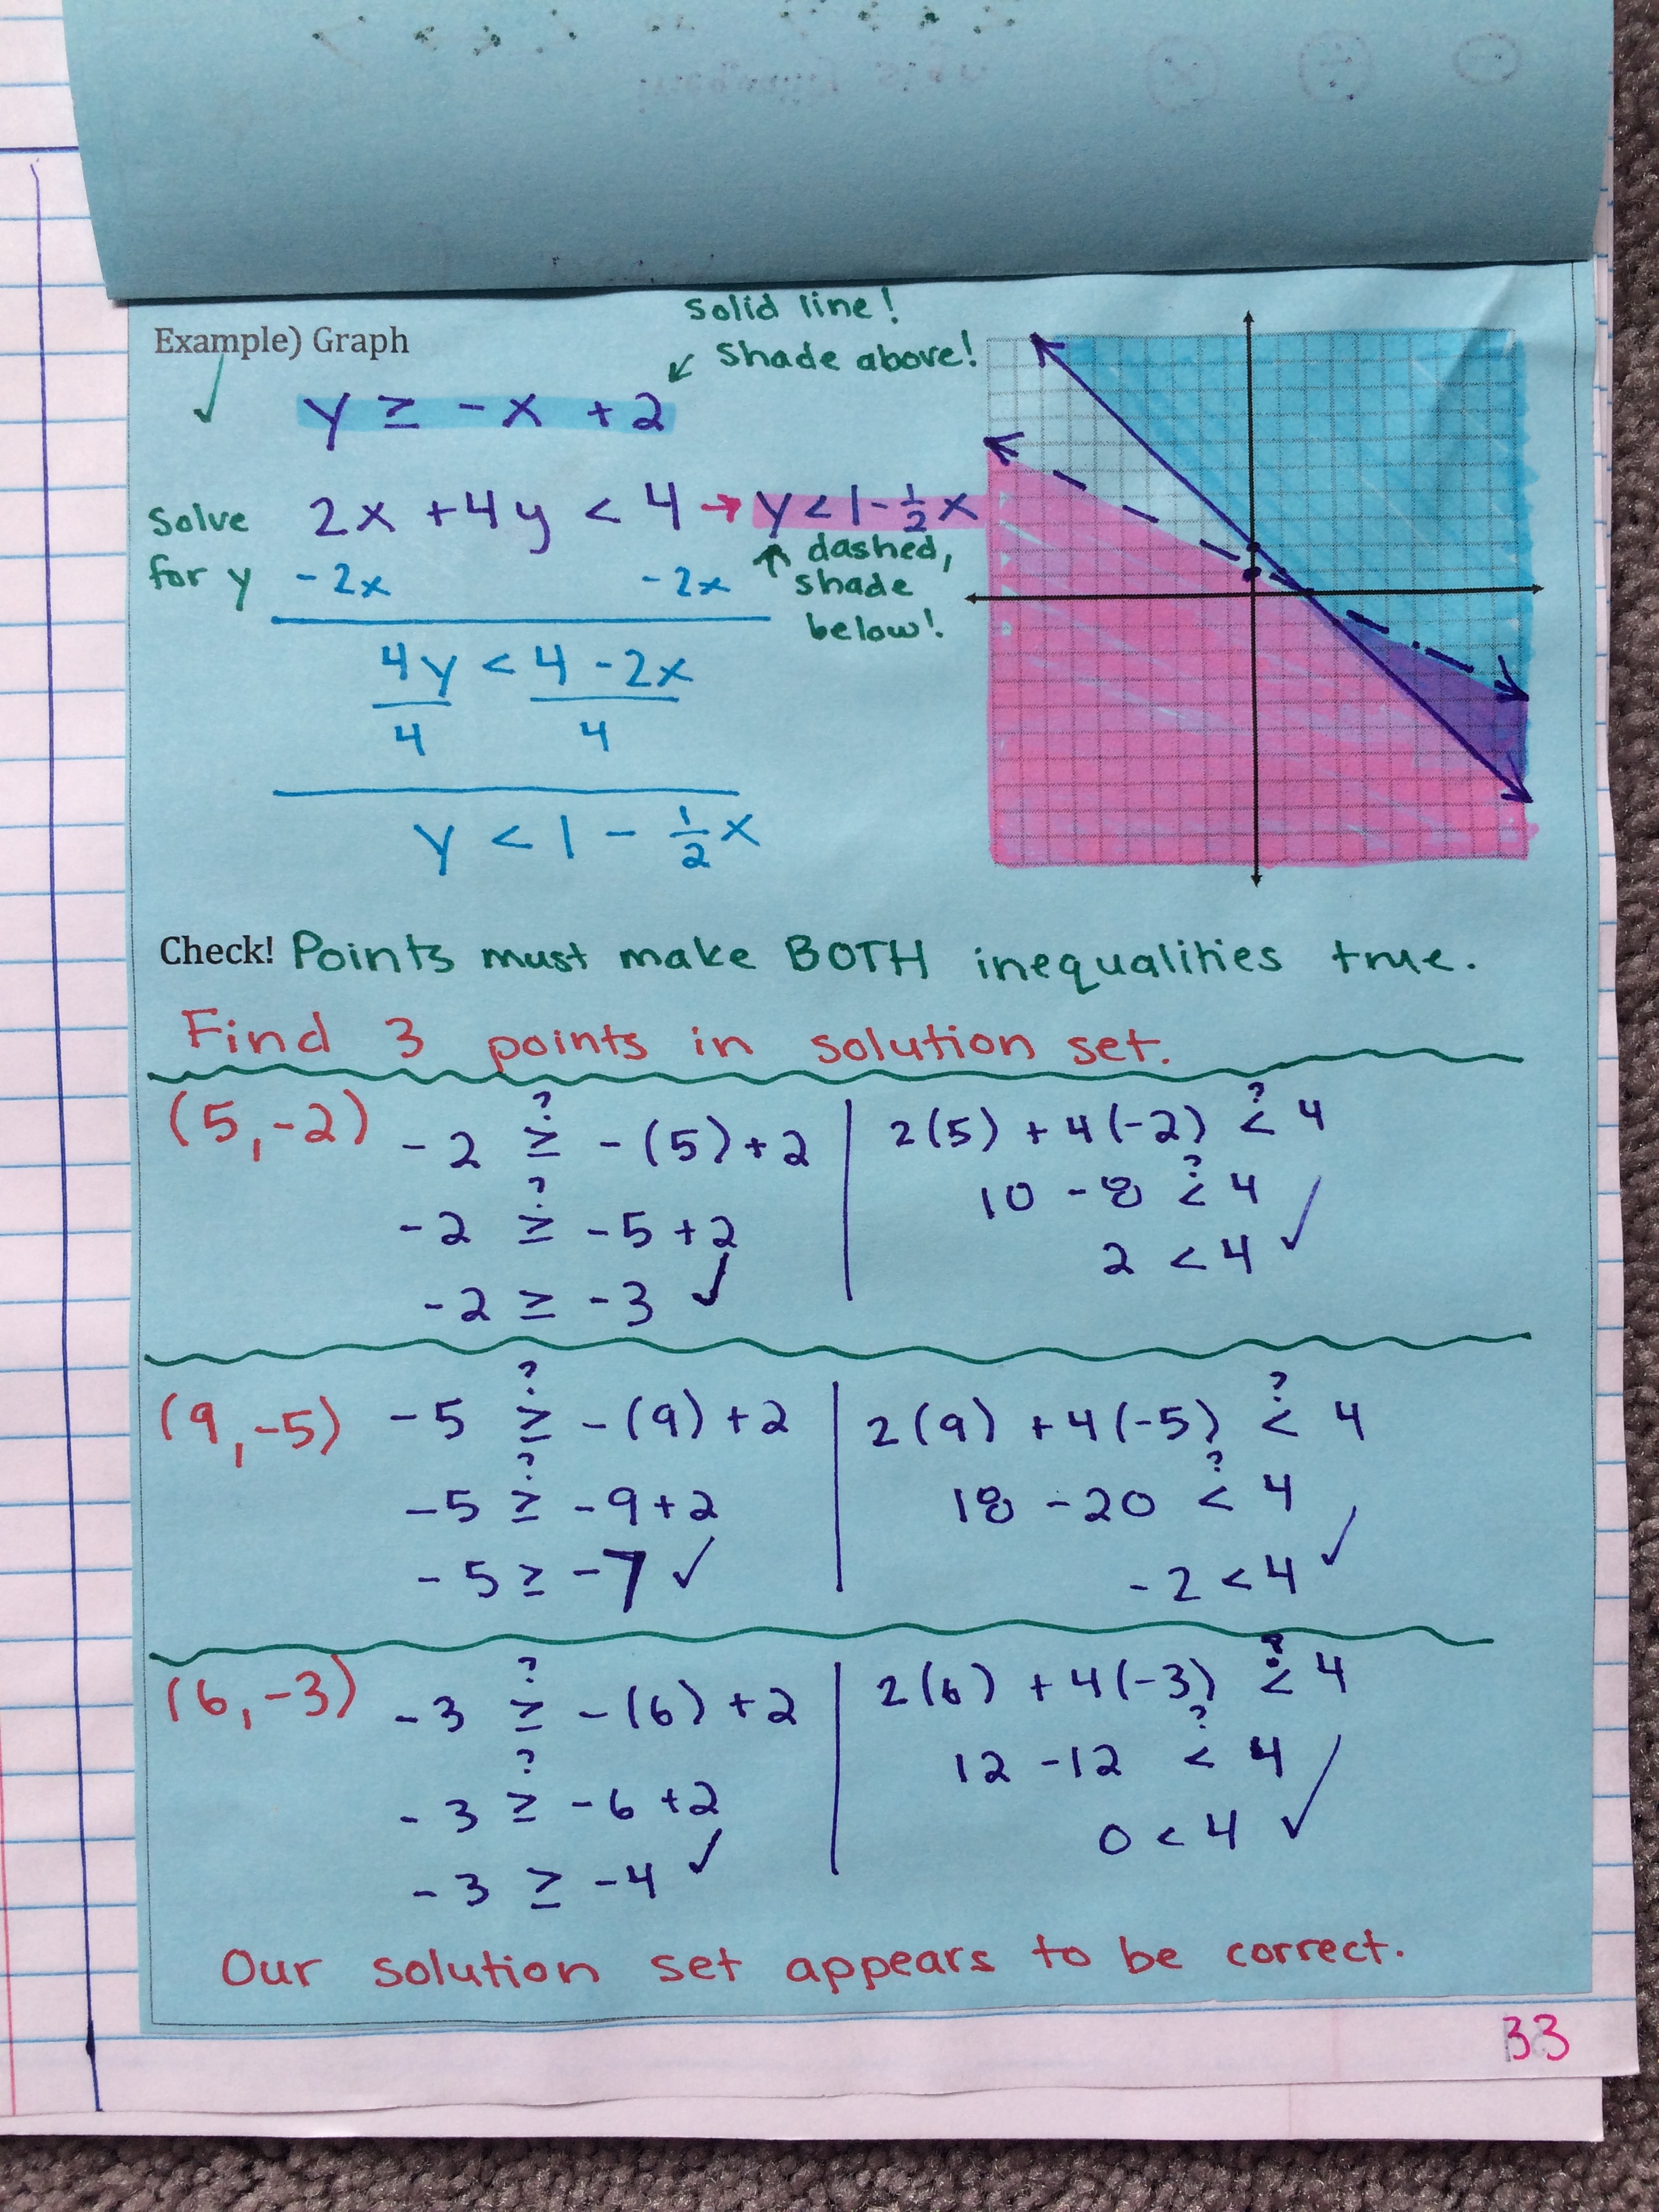 Solid line!
Example) Graph
Shade above!
✓ y ≥ -x + 2
Solve for y
2x + 4y < 4 → y < 1 - 1/2 x
dashed, shade below!
-2x -2x
4y < 4 - 2x
4 4
y < 1 - 1/2 x
Check! Points must make BOTH inequalities true.
Find 3 points in solution set.
(5, -2) -2 ≥? -(5) + 2 | 2(5) + 4(-2) <? 4
-2 ≥? -5 + 2 | 10 - 8 <? 4
-2 ≥ -3 ✓ | 2 < 4 ✓
(9, -5) -5 ≥? -(9) + 2 | 2(9) + 4(-5) <? 4
-5 ≥? -9 + 2 | 18 - 20 <? 4
-5 ≥ -7 ✓ | -2 < 4 ✓
(6, -3) -3 ≥? -(6) + 2 | 2(6) + 4(-3) <? 4
-3 ≥? -6 + 2 | 12 - 12 <? 4
-3 ≥ -4 ✓ | 0 < 4 ✓
Our solution set appears to be correct.
33